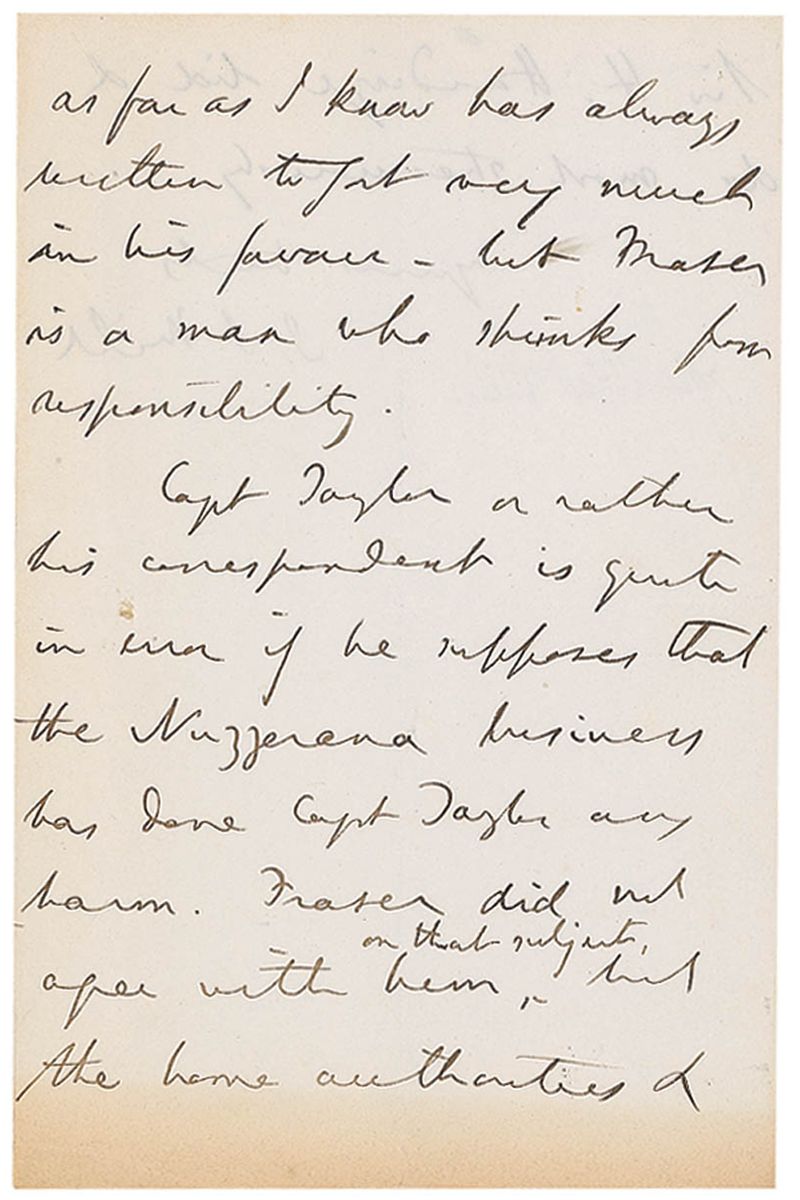 as far as I know has always
written to Govt very much
in his favour - but Fraser
is a man who shrinks from
responsibility.
Capt Taylor or rather
his correspondent is quite
in error if he supposes that
the Nuzzerana business
has done Capt Taylor any
harm. Fraser did not
on that subject,
agree with him, but
the home authorities &